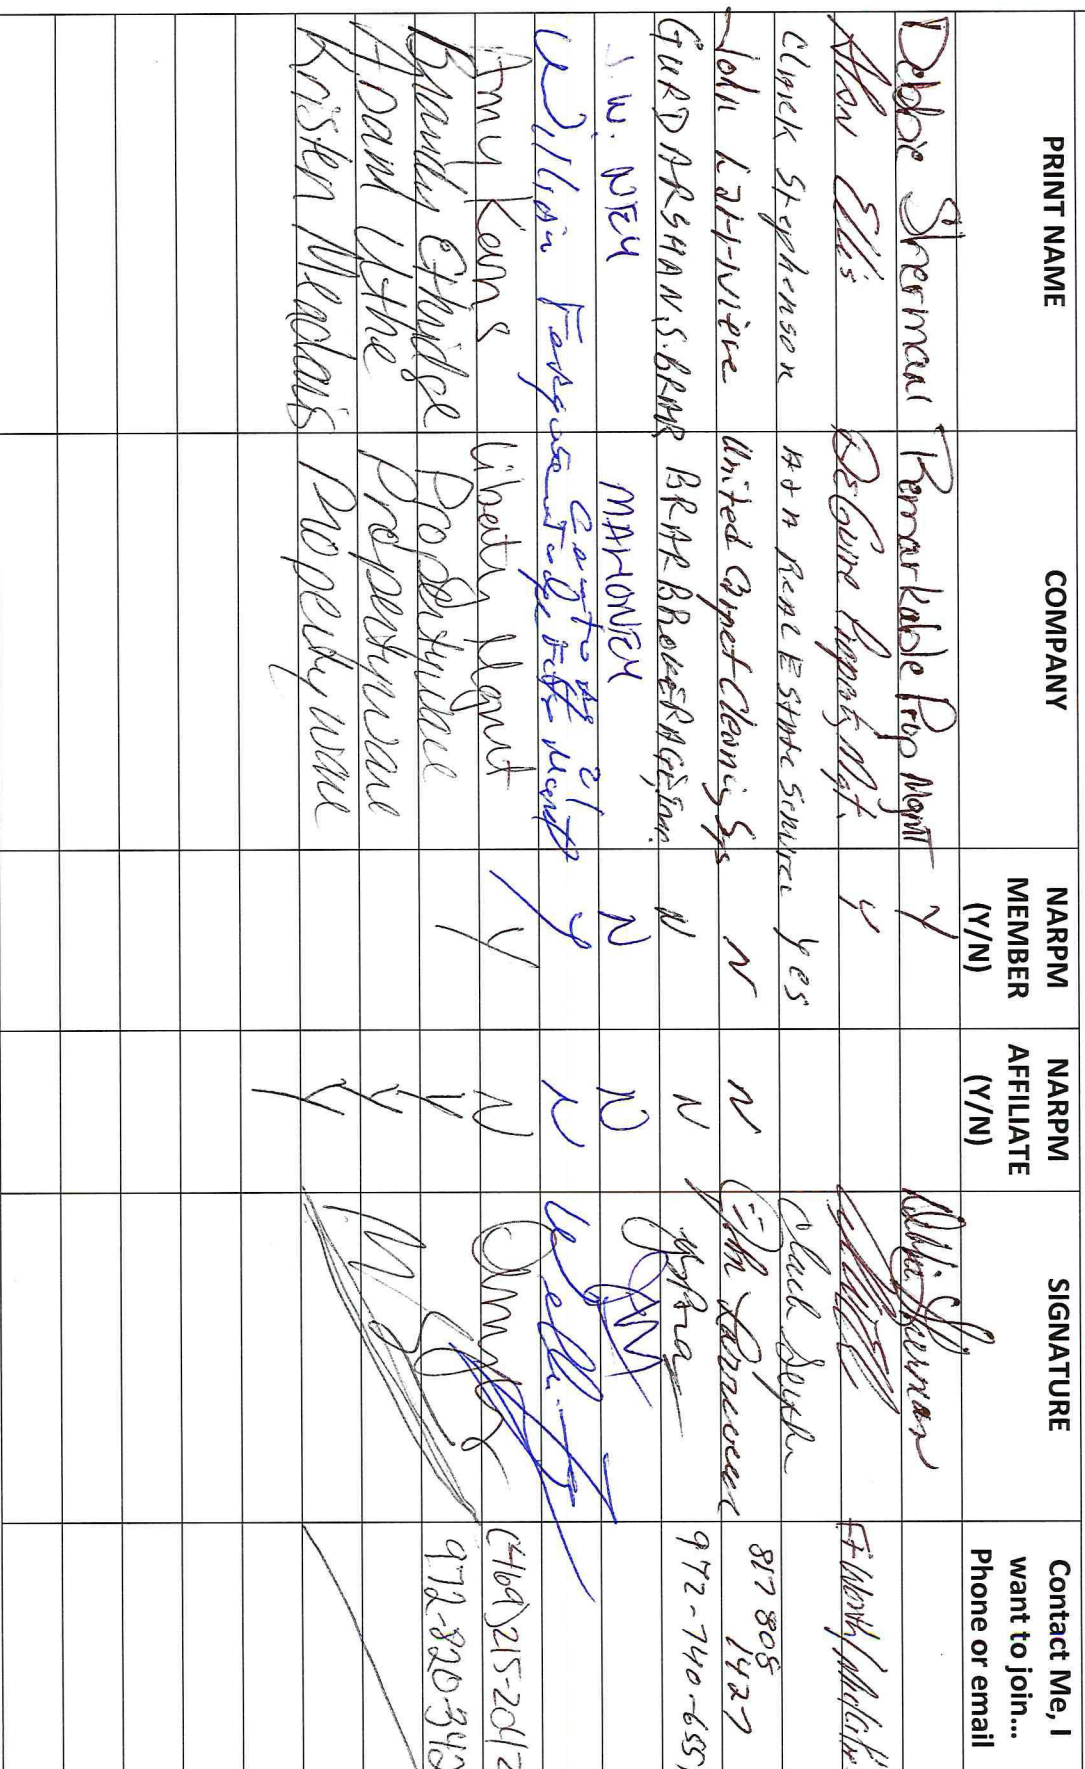 PRINT NAME COMPANY NARPM MEMBER (Y/N) NARPM AFFILIATE (Y/N) SIGNATURE Contact Me, I want to join... Phone or email
Debbie Sherman Remarkable Prop Mgmt Y Debbie Sherman
Ellis Property Mgt. Y Ft Worth/
Chuck Stephenson Real Estate Services yes
John Lariviere United Carpet Cleaning Sys N N John Lariviere 817 808 1427
GURDARSHAN.S.BRAR BRAR BROKERAGE, N N 972-740-655
J.W. NEY MAHONEY N N
William Ferguson Century 21 Y N
Amy Kerns Liberty Mgmt Y N (469)215-2042
Brandy Ethridge Propertyware Y Y 972-820-342
ADAM Uthe Propertyware Y
Kristen Propertyware Y
Y